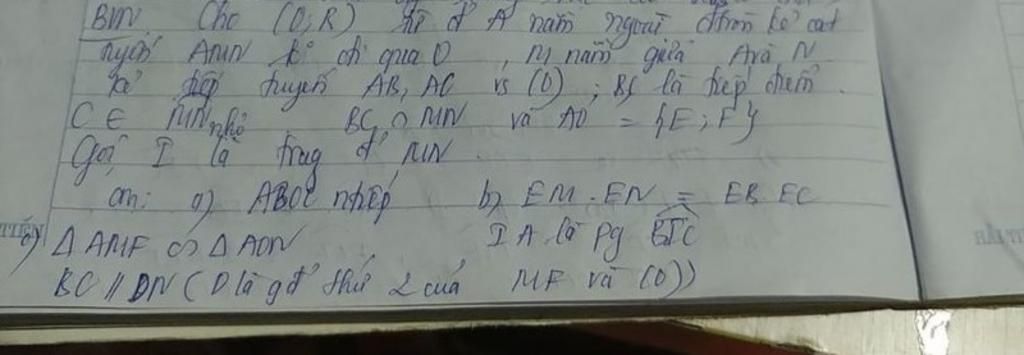 BVN. Cho (O;R) từ đ' A nằm ngoài đtròn kẻ cát
tuyến AMN k° đi qua O, M nằm giữa A và N.
Kẻ tiếp tuyến AB, AC vs (O); B, C là tiếp điểm.
C ∈ MN nhỏ BC ∩ MN và AO = {E; F}
Gọi I là trug đ' MN
cm: a) ABOC ntiếp b) EM.EN = EB.EC
c) ∆AMF ∽ ∆AON IA là pg BIC
BC // DN (D là gđ' thứ 2 của MF và (O))